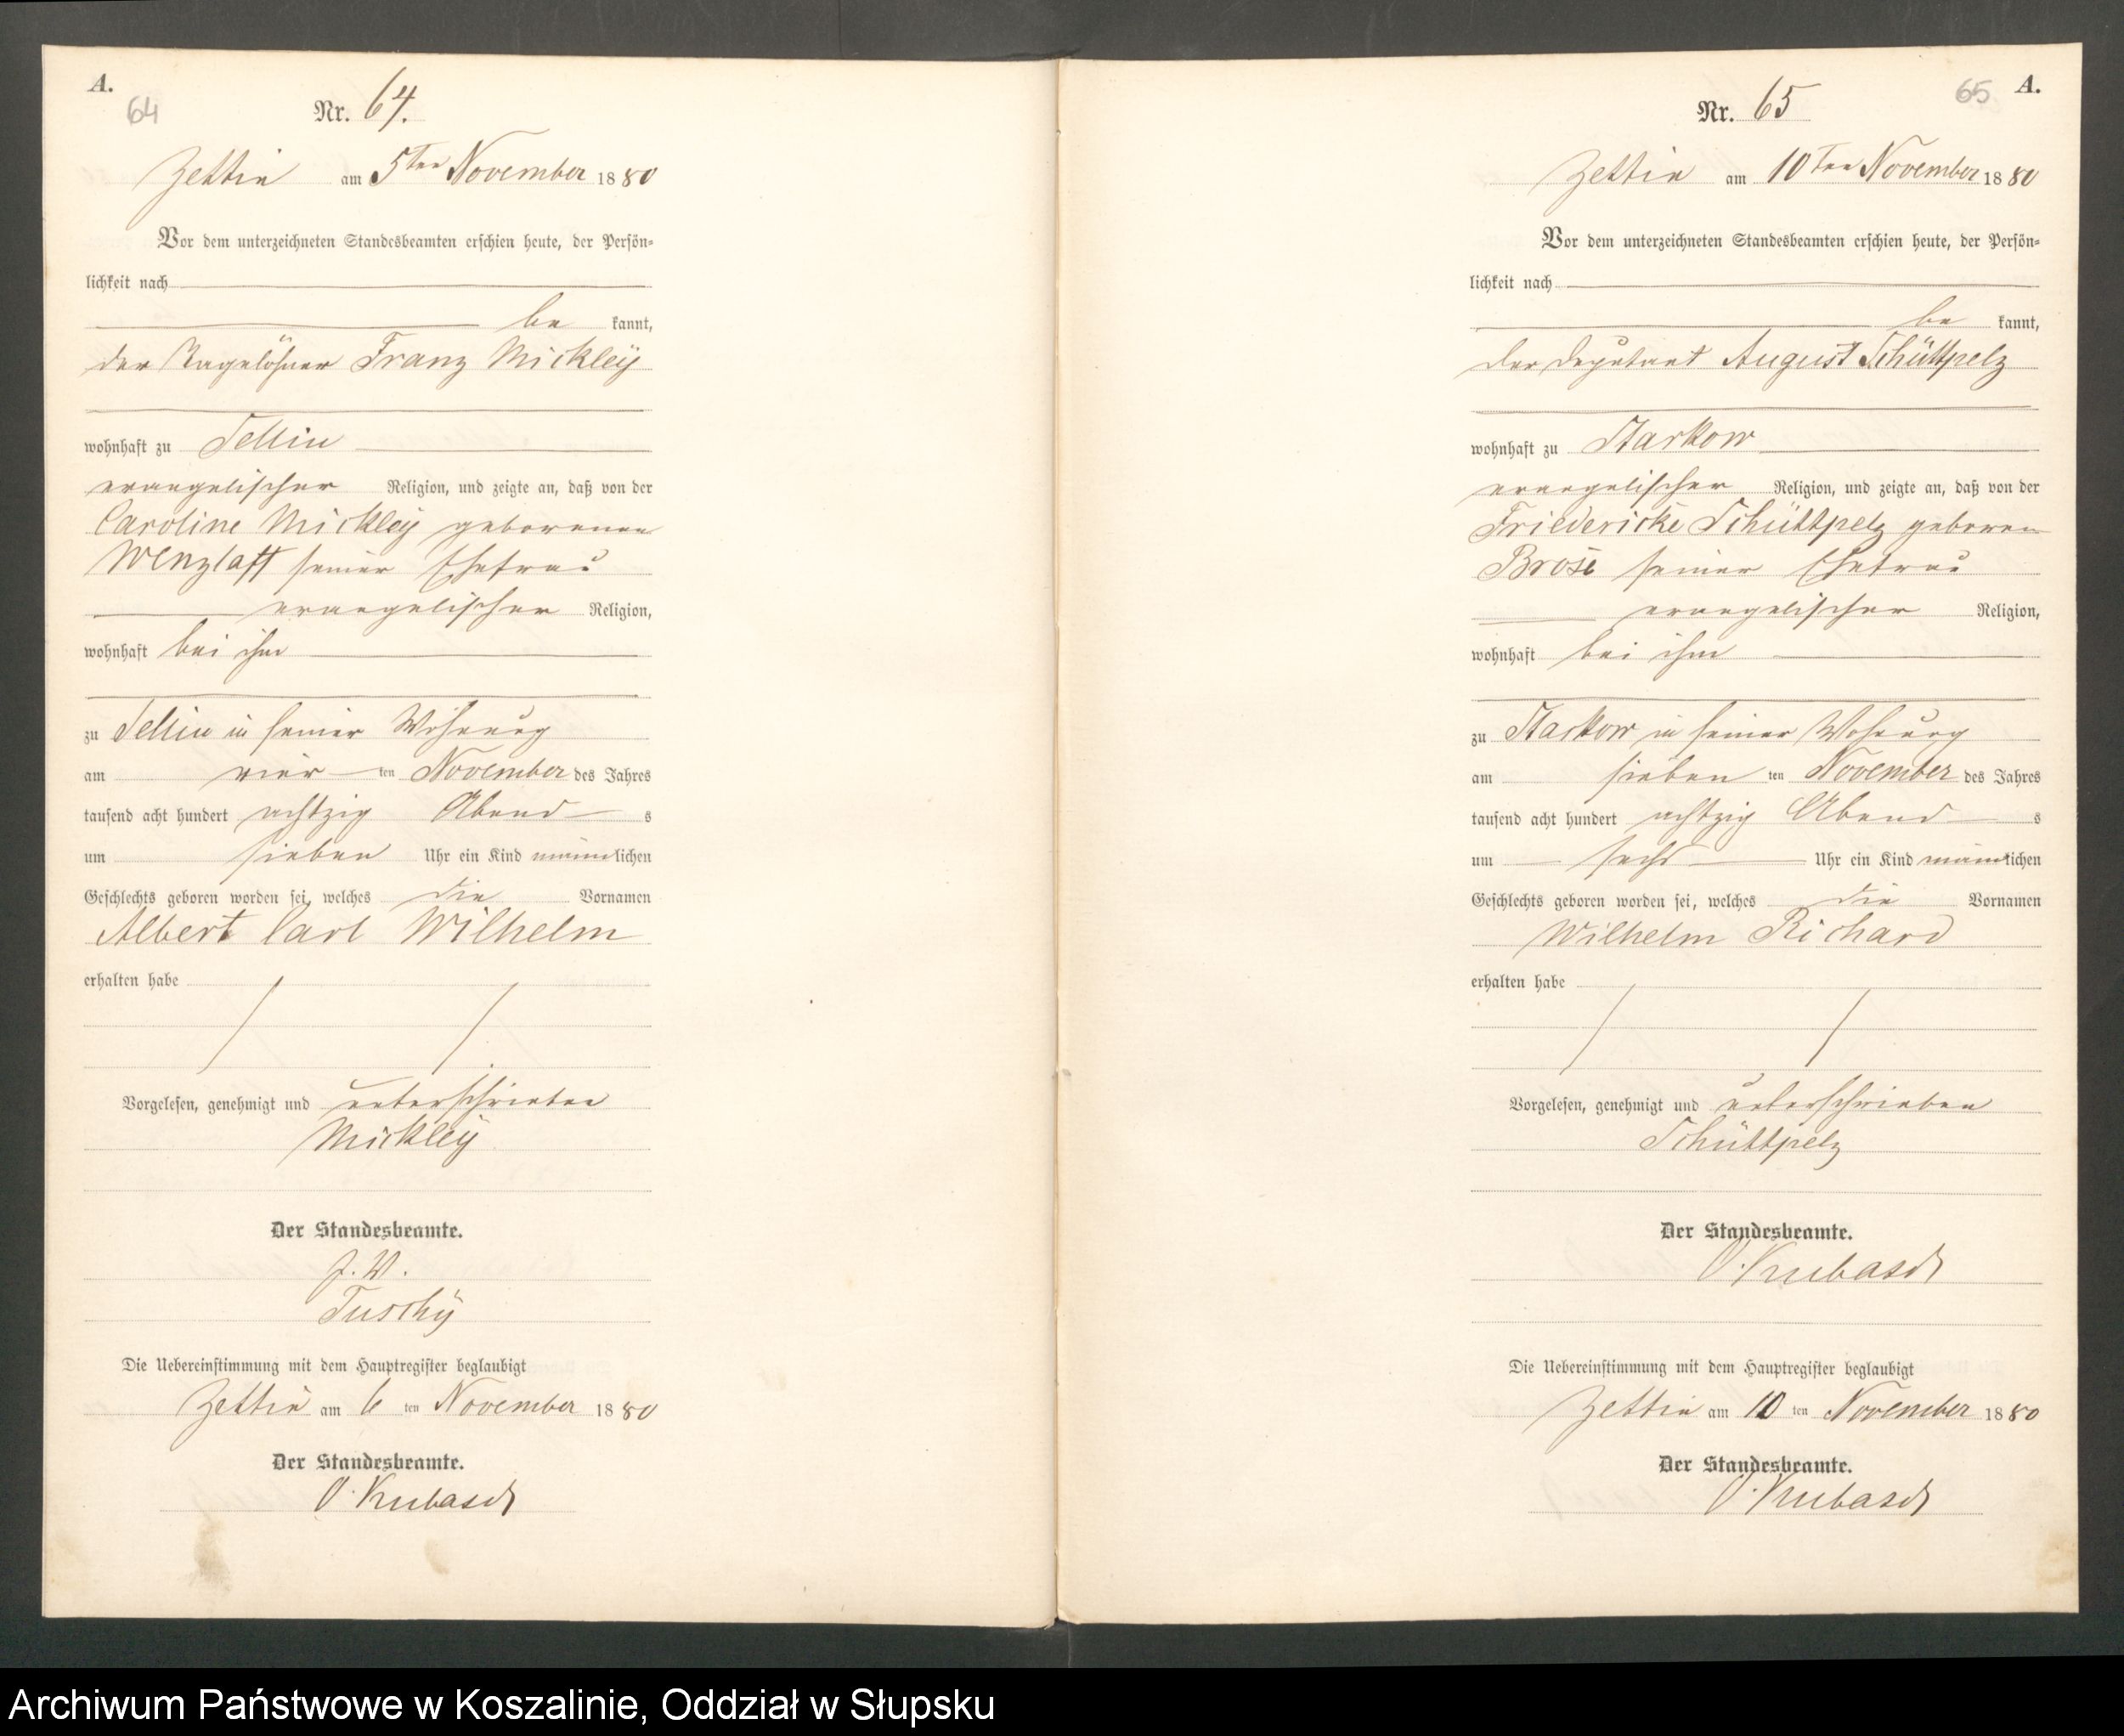 A.
64
Nr. 64.
Zettin am 5ten November 1880
Vor dem unterzeichneten Standesbeamten erschien heute, der Persön=
lichkeit nach
be kannt,
der Tagelöhner Franz Mickleÿ
wohnhaft zu Sellin
evangelischer Religion, und zeigte an, daß von der
Caroline Mickleÿ geborenen
Wenzlaff seiner Ehefrau
evangelischer Religion,
wohnhaft bei ihm
zu Sellin in seiner Wohnung
am vier ten November des Jahres
tausend acht hundert achtzig Abend s
um sieben Uhr ein Kind männlichen
Geschlechts geboren worden sei, welches die Vornamen
Albert Carl Wilhelm
erhalten habe
Vorgelesen, genehmigt und unterschrieben
Mickleÿ
Der Standesbeamte.
J. V.
Tuschÿ
Die Uebereinstimmung mit dem Hauptregister beglaubigt
Zettin am 6 ten November 1880
Der Standesbeamte.
O. Kubasch
65 A.
Nr. 65
Zettin am 10ten November 1880
Vor dem unterzeichneten Standesbeamten erschien heute, der Persön=
lichkeit nach
be kannt,
der Deputant August Schüttpelz
wohnhaft zu Starkow
evangelischer Religion, und zeigte an, daß von der
Friedericke Schüttpelz geboren
Brose seiner Ehefrau
evangelischer Religion,
wohnhaft bei ihm
zu Starkow in seiner Wohnung
am sieben ten November des Jahres
tausend acht hundert achtzig Abend s
um sechs Uhr ein Kind männlichen
Geschlechts geboren worden sei, welches die Vornamen
Wilhelm Richard
erhalten habe
Vorgelesen, genehmigt und unterschrieben
Schüttpelz
Der Standesbeamte.
O. Kubasch
Die Uebereinstimmung mit dem Hauptregister beglaubigt
Zettin am 10 ten November 1880
Der Standesbeamte.
O. Kubasch
Archiwum Państwowe w Koszalinie, Oddział w Słupsku